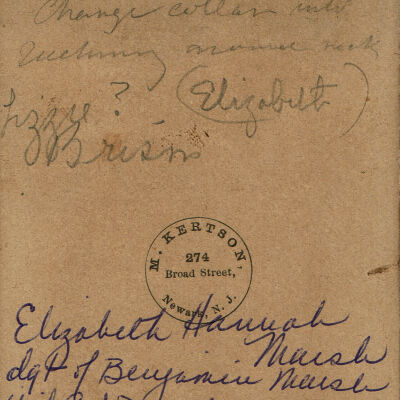 Change collar into
Ruching around neck
Lizzie? (Elizabeth)
M. KERTSON,
274
Broad Street,
Newark, N. J.
Elizabeth Hannah
Marsh
dgt of Benjamin Marsh